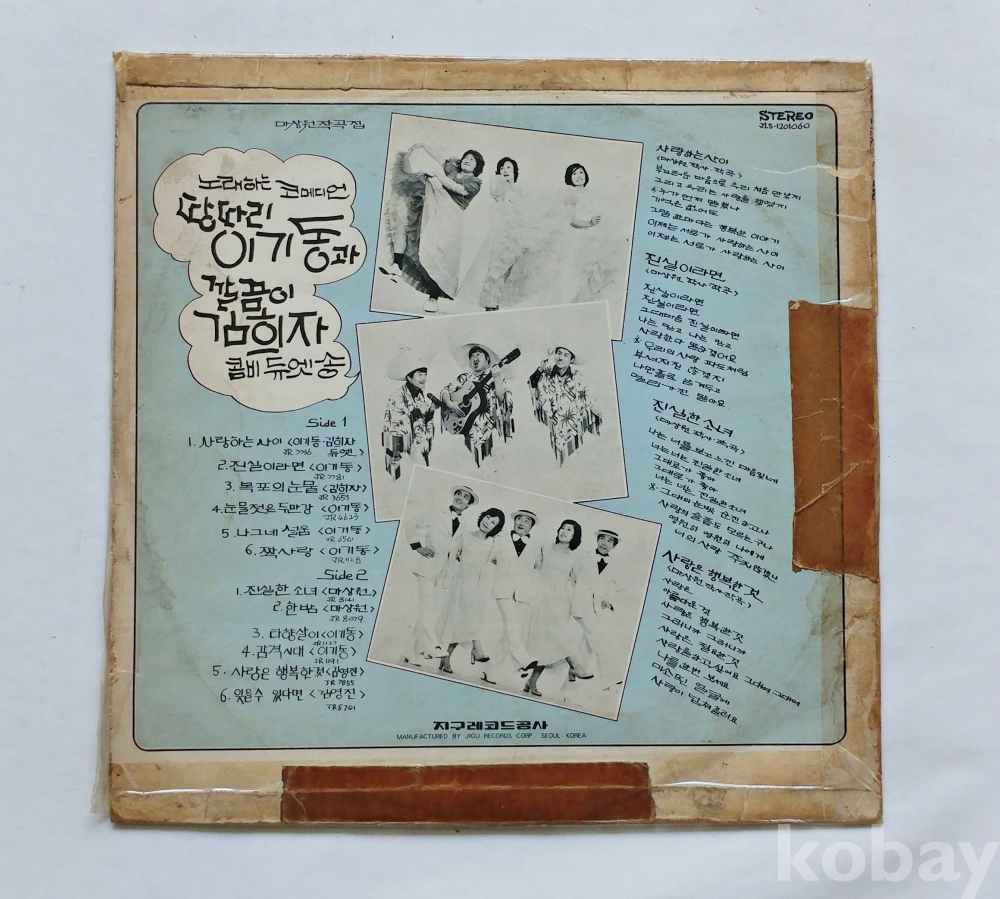 마상원작곡집
노래하는 코메디언
땅딸이
이기동과
깔끔이
김희자
콤비 듀엣 송
Side 1
1. 사랑하는 사이 <이기동·김희자
JR 7796 듀엣>
2. 진실이라면 <이기동>
JR 7781
3. 목포의 눈물 <김희자>
JR 3653
4. 눈물젖은 두만강 <이기동>
JR 4623
5. 나그네 설움 <이기동>
JR 6561
6. 짝사랑 <이기동>
JR 1128
Side 2
1. 진실한 소녀 <마상원>
JR 8141
2. 한밤 <마상원>
JR 8079
3. 타향살이 <이기동>
JR 1127
4. 감격시대 <이기동>
JR 1191
5. 사랑은 행복한 것 <김영진>
JR 7855
6. 잊을수 있다면 <김영진>
JR 5701
STEREO
JLS-1201060
사랑하는 사이
<마상원 작사·작곡>
부끄러운 마음으로 우리 처음 만났지
그리고 우리는 사랑을 했었지
※ 누가 먼저 말했나
기억은 없어도
그말 한마디는 행복한 이야기
이제는 서로가 사랑하는 사이
이제는 서로가 사랑하는 사이
진실이라면
<마상원 작사·작곡>
진실이라면
진실이라면
그대마음 진실이라면
나는 믿고 나는 믿고
사랑한다 말하겠어요
※ 우리의 사랑 파도처럼
부서지진 않겠지
나만홀로 남겨두고
멀리 가진 말아요
진실한 소녀
<마상원 작사·작곡>
나는 너를 보고 느낀 마음있네
너는 너는 진실한 소녀
그대로가 좋아
그대로가 좋아
너는 너는 진실한 소녀
※ 그대의 눈빛 순진하고나
사랑의 슬픔도 모르는구나
영원히 영원히 나에게
너의 사랑 주지 않겠니
사랑은 행복한 것
<마상원 작사·작곡>
사랑은
아름다운 것
사랑은 행복한 것
그러니까 그러니까
사랑은 필요한 것
사랑을 하고 싶어요 그대여 그대여
나를 한번 보세요
미소띤 얼굴에
사랑이 넘쳐흘러요
지구레코드공사
MANUFACTURED BY JIGU RECORDS CORP. SEOUL·KOREA
kobay